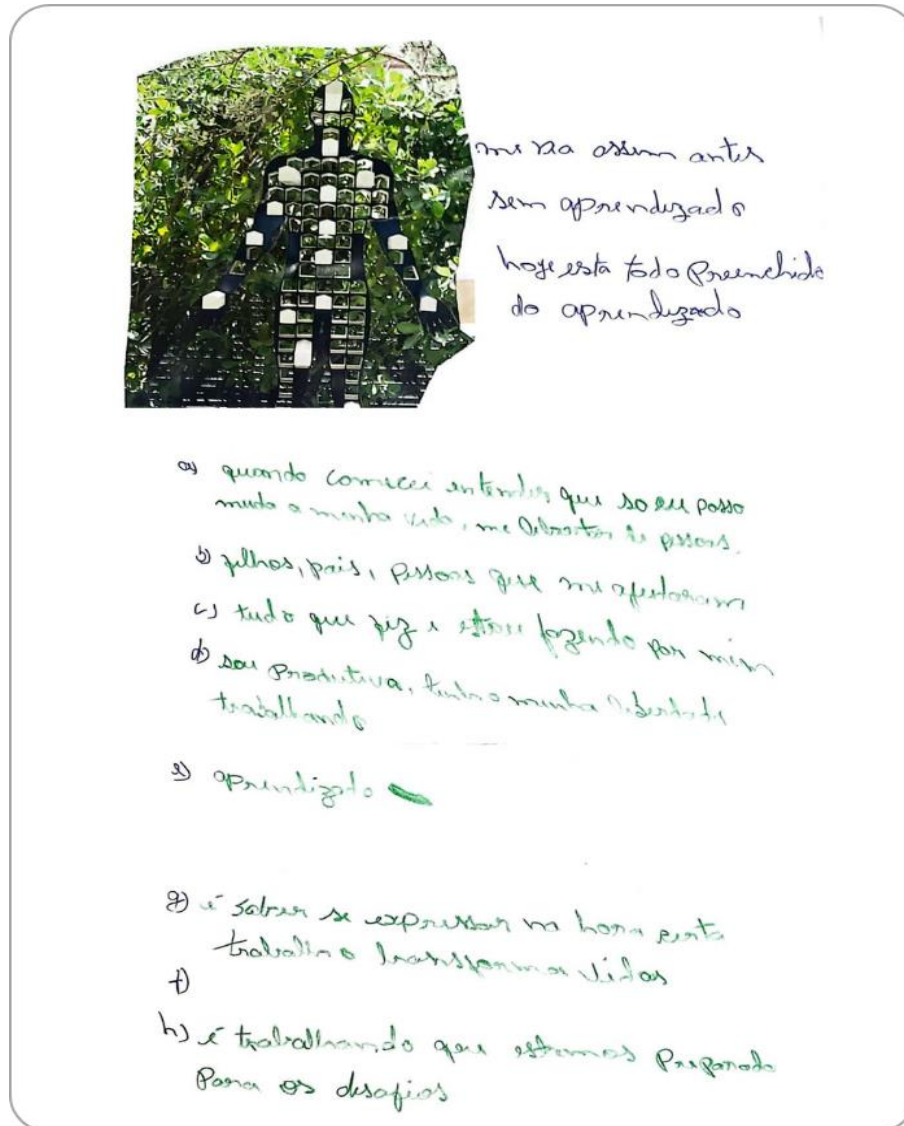 me via assim antes
sem aprendizado
hoje esta todo preenchido
do aprendizado
a) quando comecei entender que so eu posso
muda a minha vida, me libertar de pessoas.
b) filhos, pais, pessoas que me ajudaram
c) tudo que fiz e estou fazendo por mim
d) sou produtiva, tenho minha liberdade
trabalhando
e) aprendizado
g) é saber se expressar na hora certa
trabalho transforma vidas
f)
h) é trabalhando que estamos preparado
para os desafios